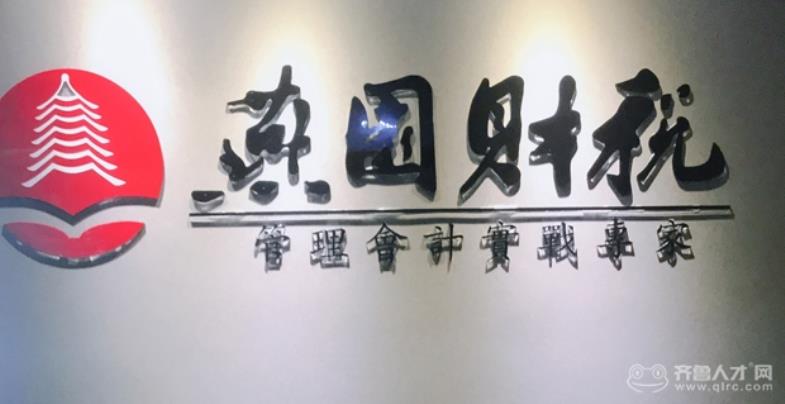 燕园财税
管理會計實戰專家
齐鲁人才网
www.qlrc.com